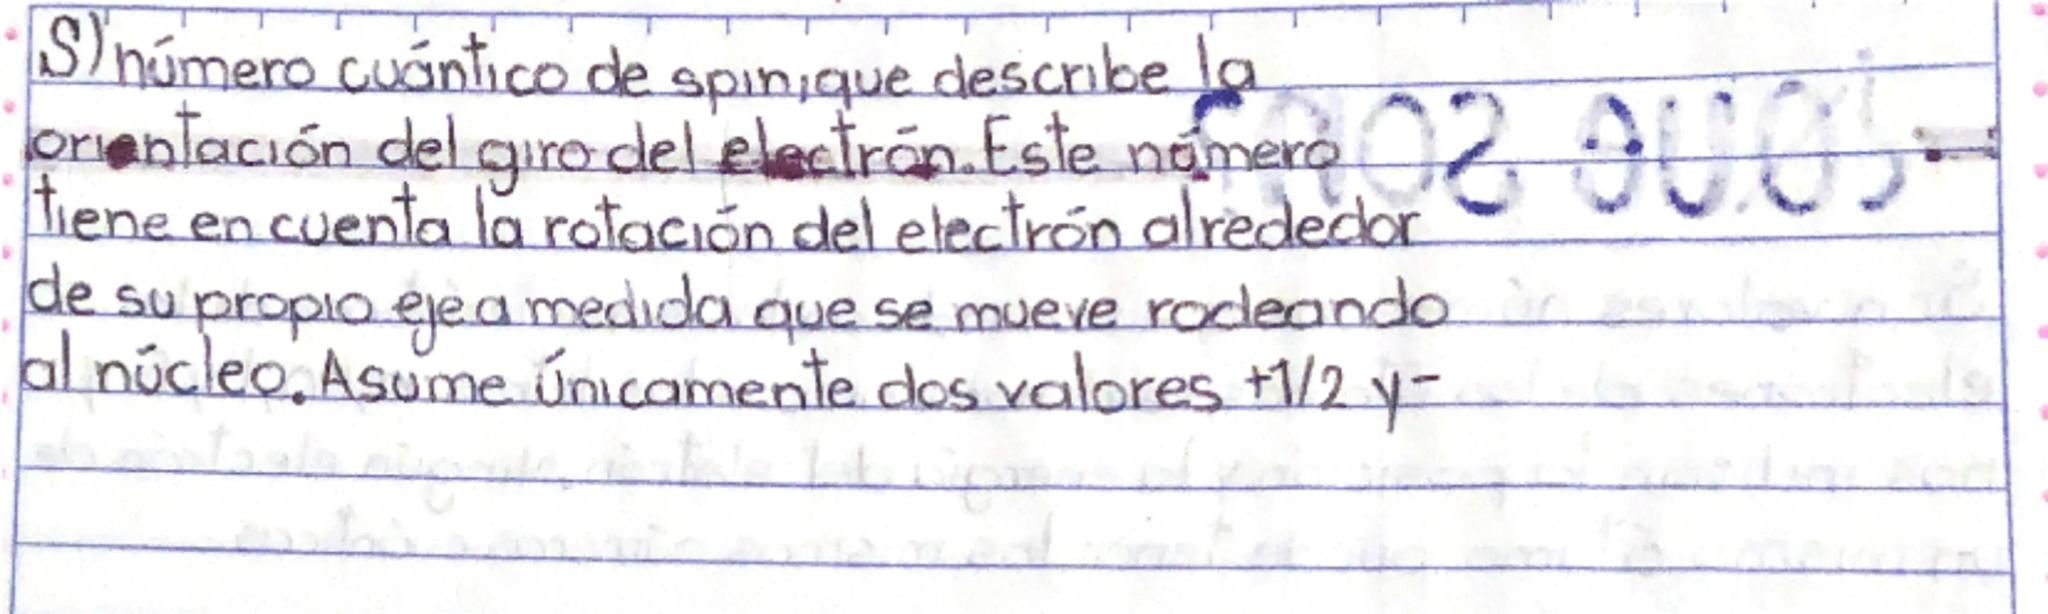 S) número cuántico de spin, que describe la
orientación del giro del electrón. Este número
tiene en cuenta la rotación del electrón alrededor
de su propio eje a medida que se mueve rodeando
al núcleo. Asume únicamente dos valores +1/2 y -